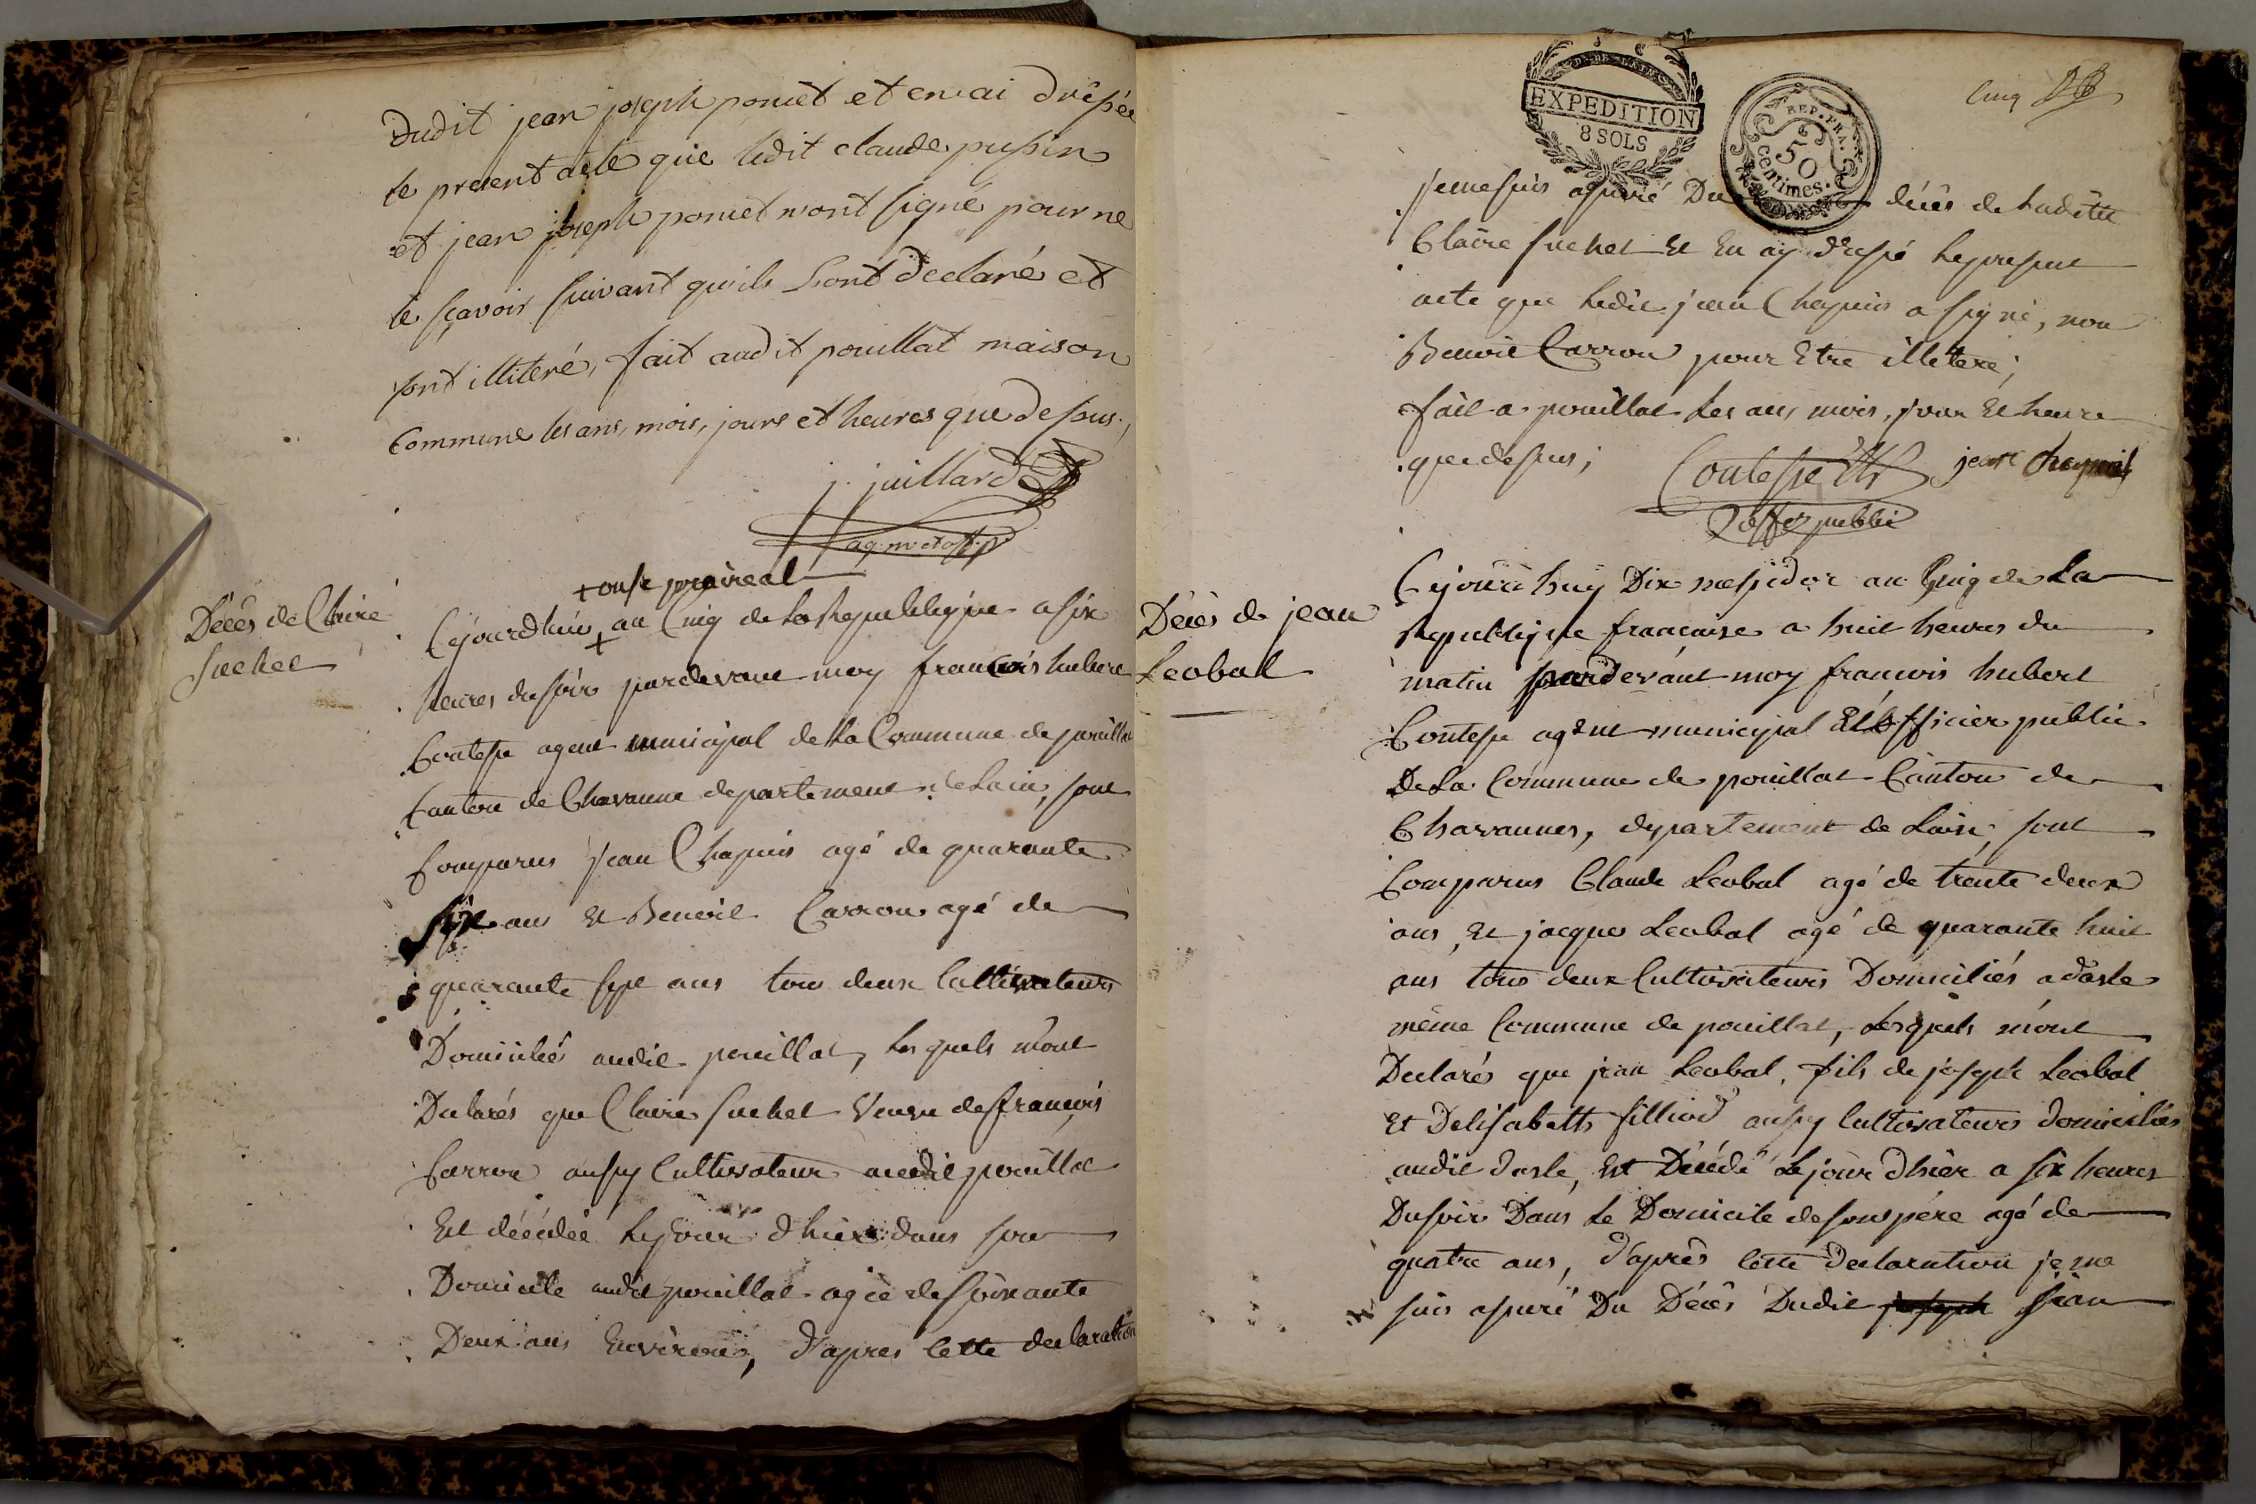 dudit jean joseph ponset et en ai dressée
le present acte que ledit claude pussin
et jean joseph ponset n'ont signé pour ne
le sçavoir suivant qu'ils l'ont declaré et
sont illiteré, fait audit pouillat maison
Commune les ans, mois, jours et heures que dessus.,
j. juillard
ag. m. et off. p.
+ onse praireal
Décès de Claire
Suchet
Cejourdhui + an Cinq de la Republique a six
heures du soir pardevant moy francois hubert
Contesse agent municipal de la Commune de pouillat
Canton de Chavanne departement de Lain, sont
Comparus Jean Chapuis agé de quarante
Six ans Et Benoit Carron agé de
quarante sept ans tous deux Cultivateurs
Domiciliés audit pouillat, lesquels m'ont
Declarés que Claire Suchet Veuve de francois
Carron aussy Cultivateur audit pouillat
Est décédée le jour d'hier dans son
Domicile audit pouillat agée de soixante
Deux ans Environs, d'apres cette declaration
EXPEDITION
8 SOLS
REP. FRA.
50
centimes.
Cinq
je me suis assuré Du décès de ladite
Claire Suchet Et En ay dressé le present
acte que ledit jean Chapuis a signé, non
Benoit Carron pour Etre illeteré;
fait a pouillat les an, mois, jour Et heure
que dessus;
Contesse
jean Chapuis
offer public
Décès de jean
Leobal
Cejourdhuy Dix messidor an Cinq de La
Republique francaise a huit heures du
matin pardevant moy francois hubert
Contesse agent municipal Et officier public
De La Commune de pouillat Canton de
Chavannes, departement de Lain sont
Comparus Claude Leobal agé de trente deux
ans, Et jacques Leobal agé de quarante huit
ans tous deux Cultivateurs Domiciliés a daste
même Commune de pouillat, Lesquels m'ont
Declarés que jean Leobal, fils de joseph Leobal
Et Delisabeth filliod aussy Cultivateurs domiciliés
audit daste, Est Décédé Le jour d'hier a six heures
Du soir Dans Le Domicile de son père agé de
quatre ans, d'après cette Declaration je me
suis assuré Du Décès Dudit joseph jean